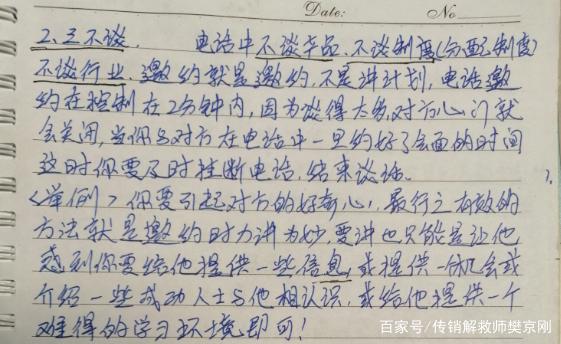 Date: No
2.三不谈. 电话中不谈产品.不谈制度(分配制度)
不谈行业.邀约就是邀约,不是讲计划,电话邀
约在控制在2分钟内,因为谈得太多,对方心门就
会关闭,当你与对方在电话中一旦约好了会面的时间
这时你要及时挂断电话,结束谈话。
<举例>你要引起对方的好奇心,最行之有效的
方法就是邀约时少讲为妙,要讲也只能是让他
感到你要给他提供一些信息,或提供一机会或
介绍一些成功人士与他相认识,或给他提供一个
难得的学习环境即可!
百家号/传销解救师樊京刚